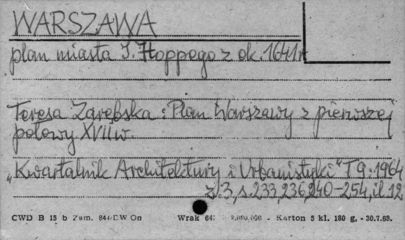 WARSZAWA
plan miasta I. Hoppego z ok. 1641 r
Teresa Zarębska: Plan Warszawy z pierwszej
połowy XVII w.
„Kwartalnik Architektury i Urbanistyki" T 9: 1964
z. 3, s. 233, 236, 240-254, il 12
CWD B 15 b Zam. On Wrak Karton 5 kl. 180 g. - 30.7.68.